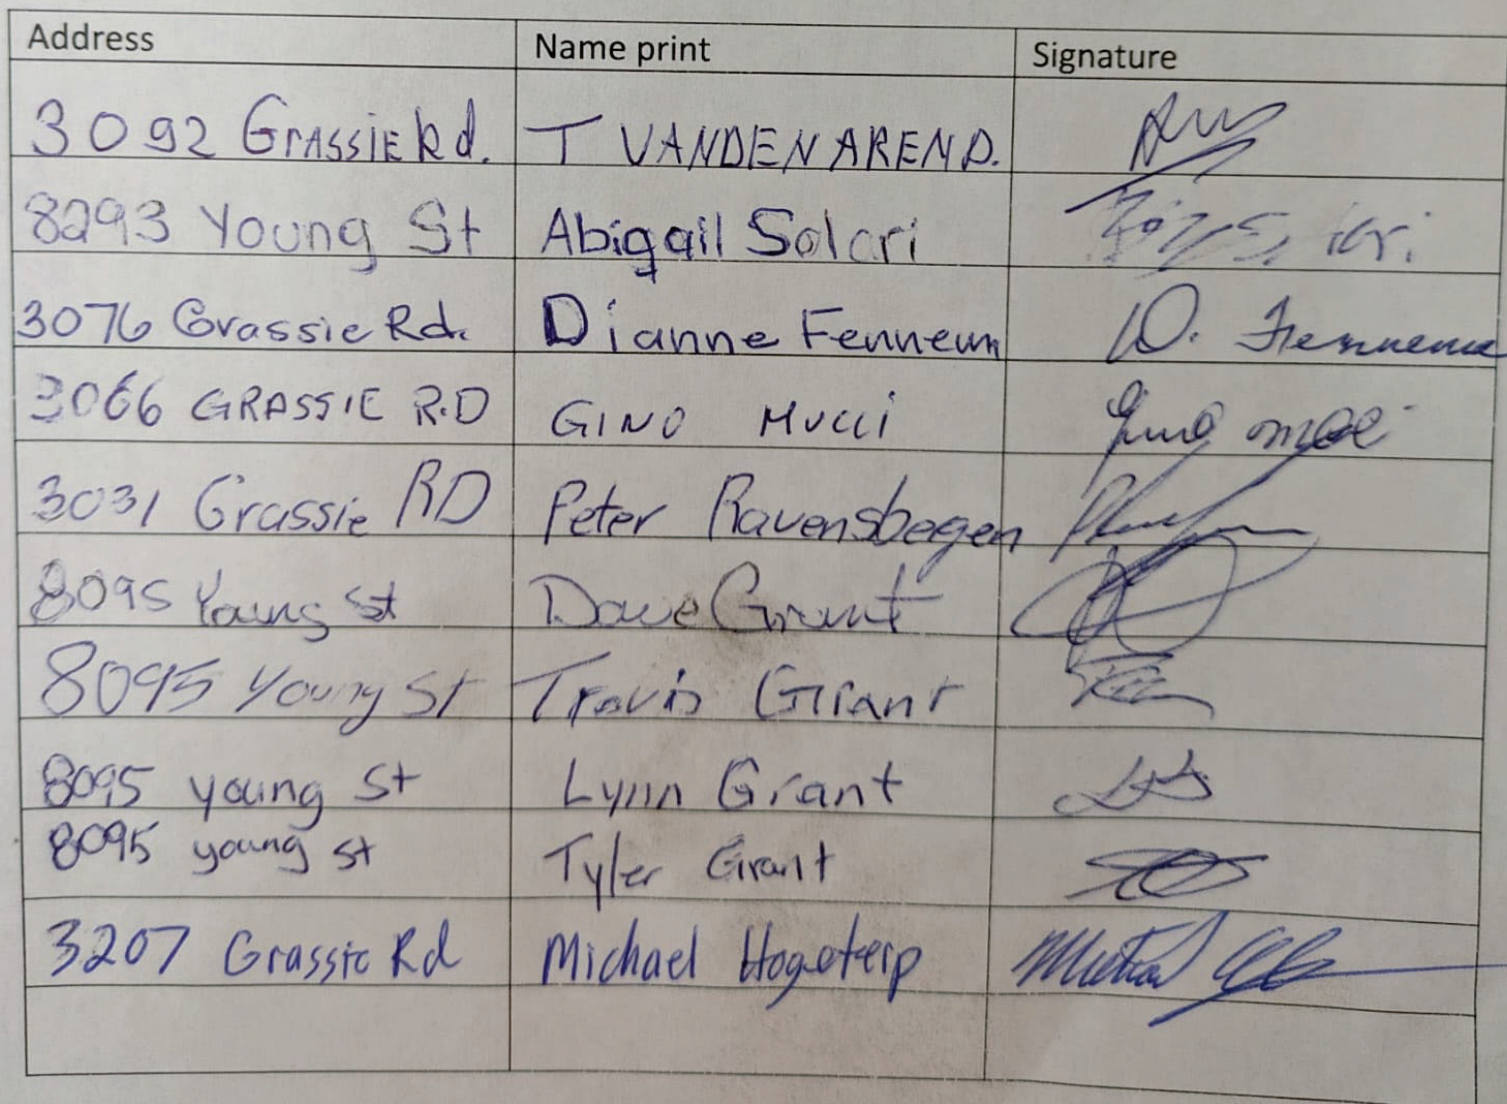 Address Name print Signature
3092 GRASSIE Rd. T VANDEN AREND.
8293 Young St Abigail Solari
3076 Grassie Rd. Dianne Fennem D. Fennema
3066 GRASSIE R.D GINO MUCCI
3031 Grassie RD Peter Ravensbegen
8095 Young St Dave Grant
8095 Young St Travis Grant
8095 young St Lynn Grant
8095 young st Tyler Grant
3207 Grassie Rd Michael Hogeterp